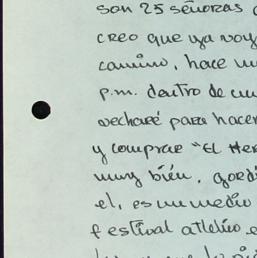 son 25 señoras
creo que ya voy
camino, hace
p.m. dentro de
vecharé para hacer
y comprar "El Her
muy bién, gord
el, es un medio
festival atlético,